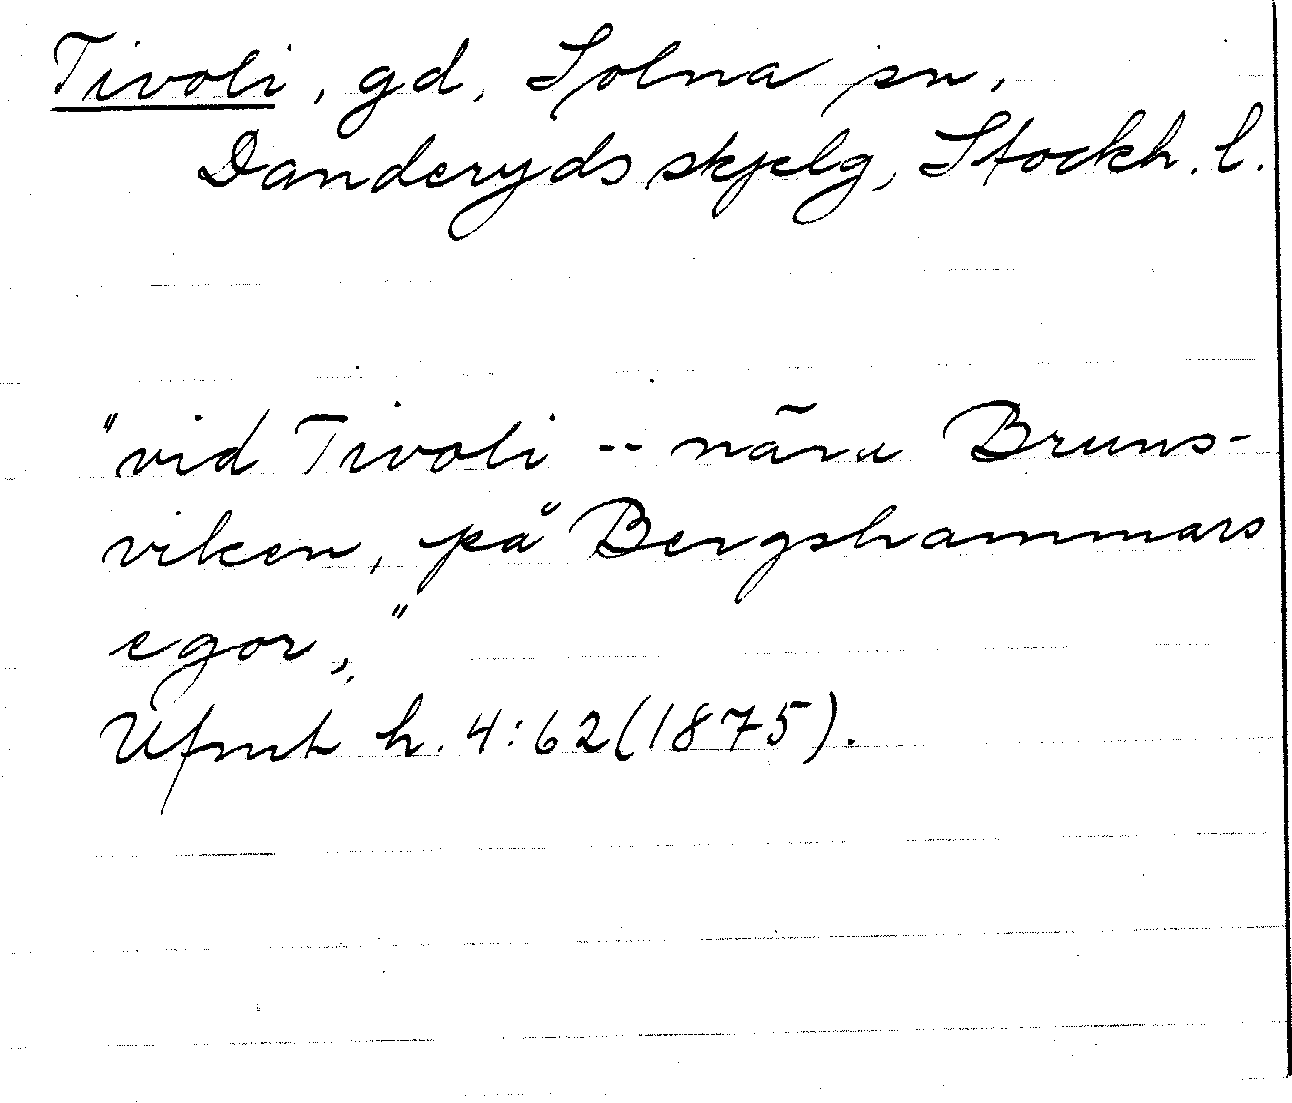 Tivoli, gd, Solna sn,
Danderyds skjelg, Stockh. l.
"vid Tivoli -- nära Bruns-
viken, på Bergshammars
egor,"
Ufmt h. 4:62(1875).